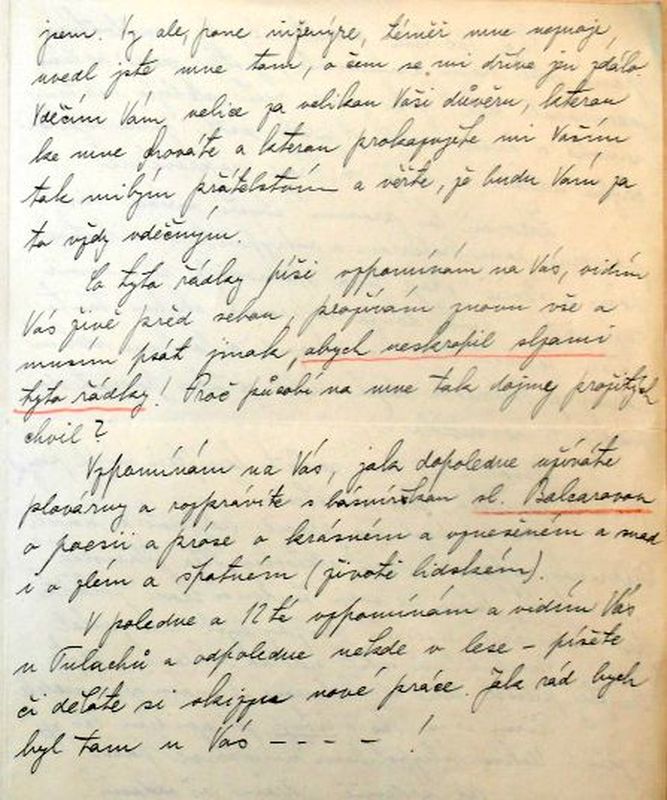 jsem. Vy ale, pane inženýre, téměř mne neznaje,
uvedl jste mne tam, o čem se mi dříve jen zdálo.
Vděčím Vám velice za velikou Vaši důvěru, kterou
ke mne chováte a kterou prokazujete mi Vaším
tak milým přátelstvím a věřte, že budu Vám za
to vždy vděčným.
Co tyto řádky píši vzpomínám na Vás, vidím
Vás živě před sebou, prožívám znovu vše a
musím psát jinak, abych neskropil slzami
tyto řádky! Proč působí na mne tak dojmy prožitých
chvil?
Vzpomínám na Vás, jak dopoledne užíváte
plovárny a rozprávíte s básnířkou sl. Balcarovou
o poesii a próse o krásném a vznešeném a snad
i o zlém a špatném (životě lidském).
V poledne a 12té vzpomínám a vidím Vás
u Tulachů a odpoledne někde v lese – píšete
či děláte si skizzu nové práce. Jak rád bych
byl tam u Vás – – – – !